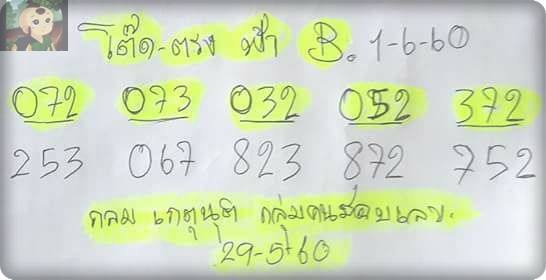 โต๊ด-ตรง ฟ้า B. 1-6-60
072 073 032 052 372
253 067 823 872 752
กลม เกตุนุติ กลุ่มคน เลข.
29-5-60